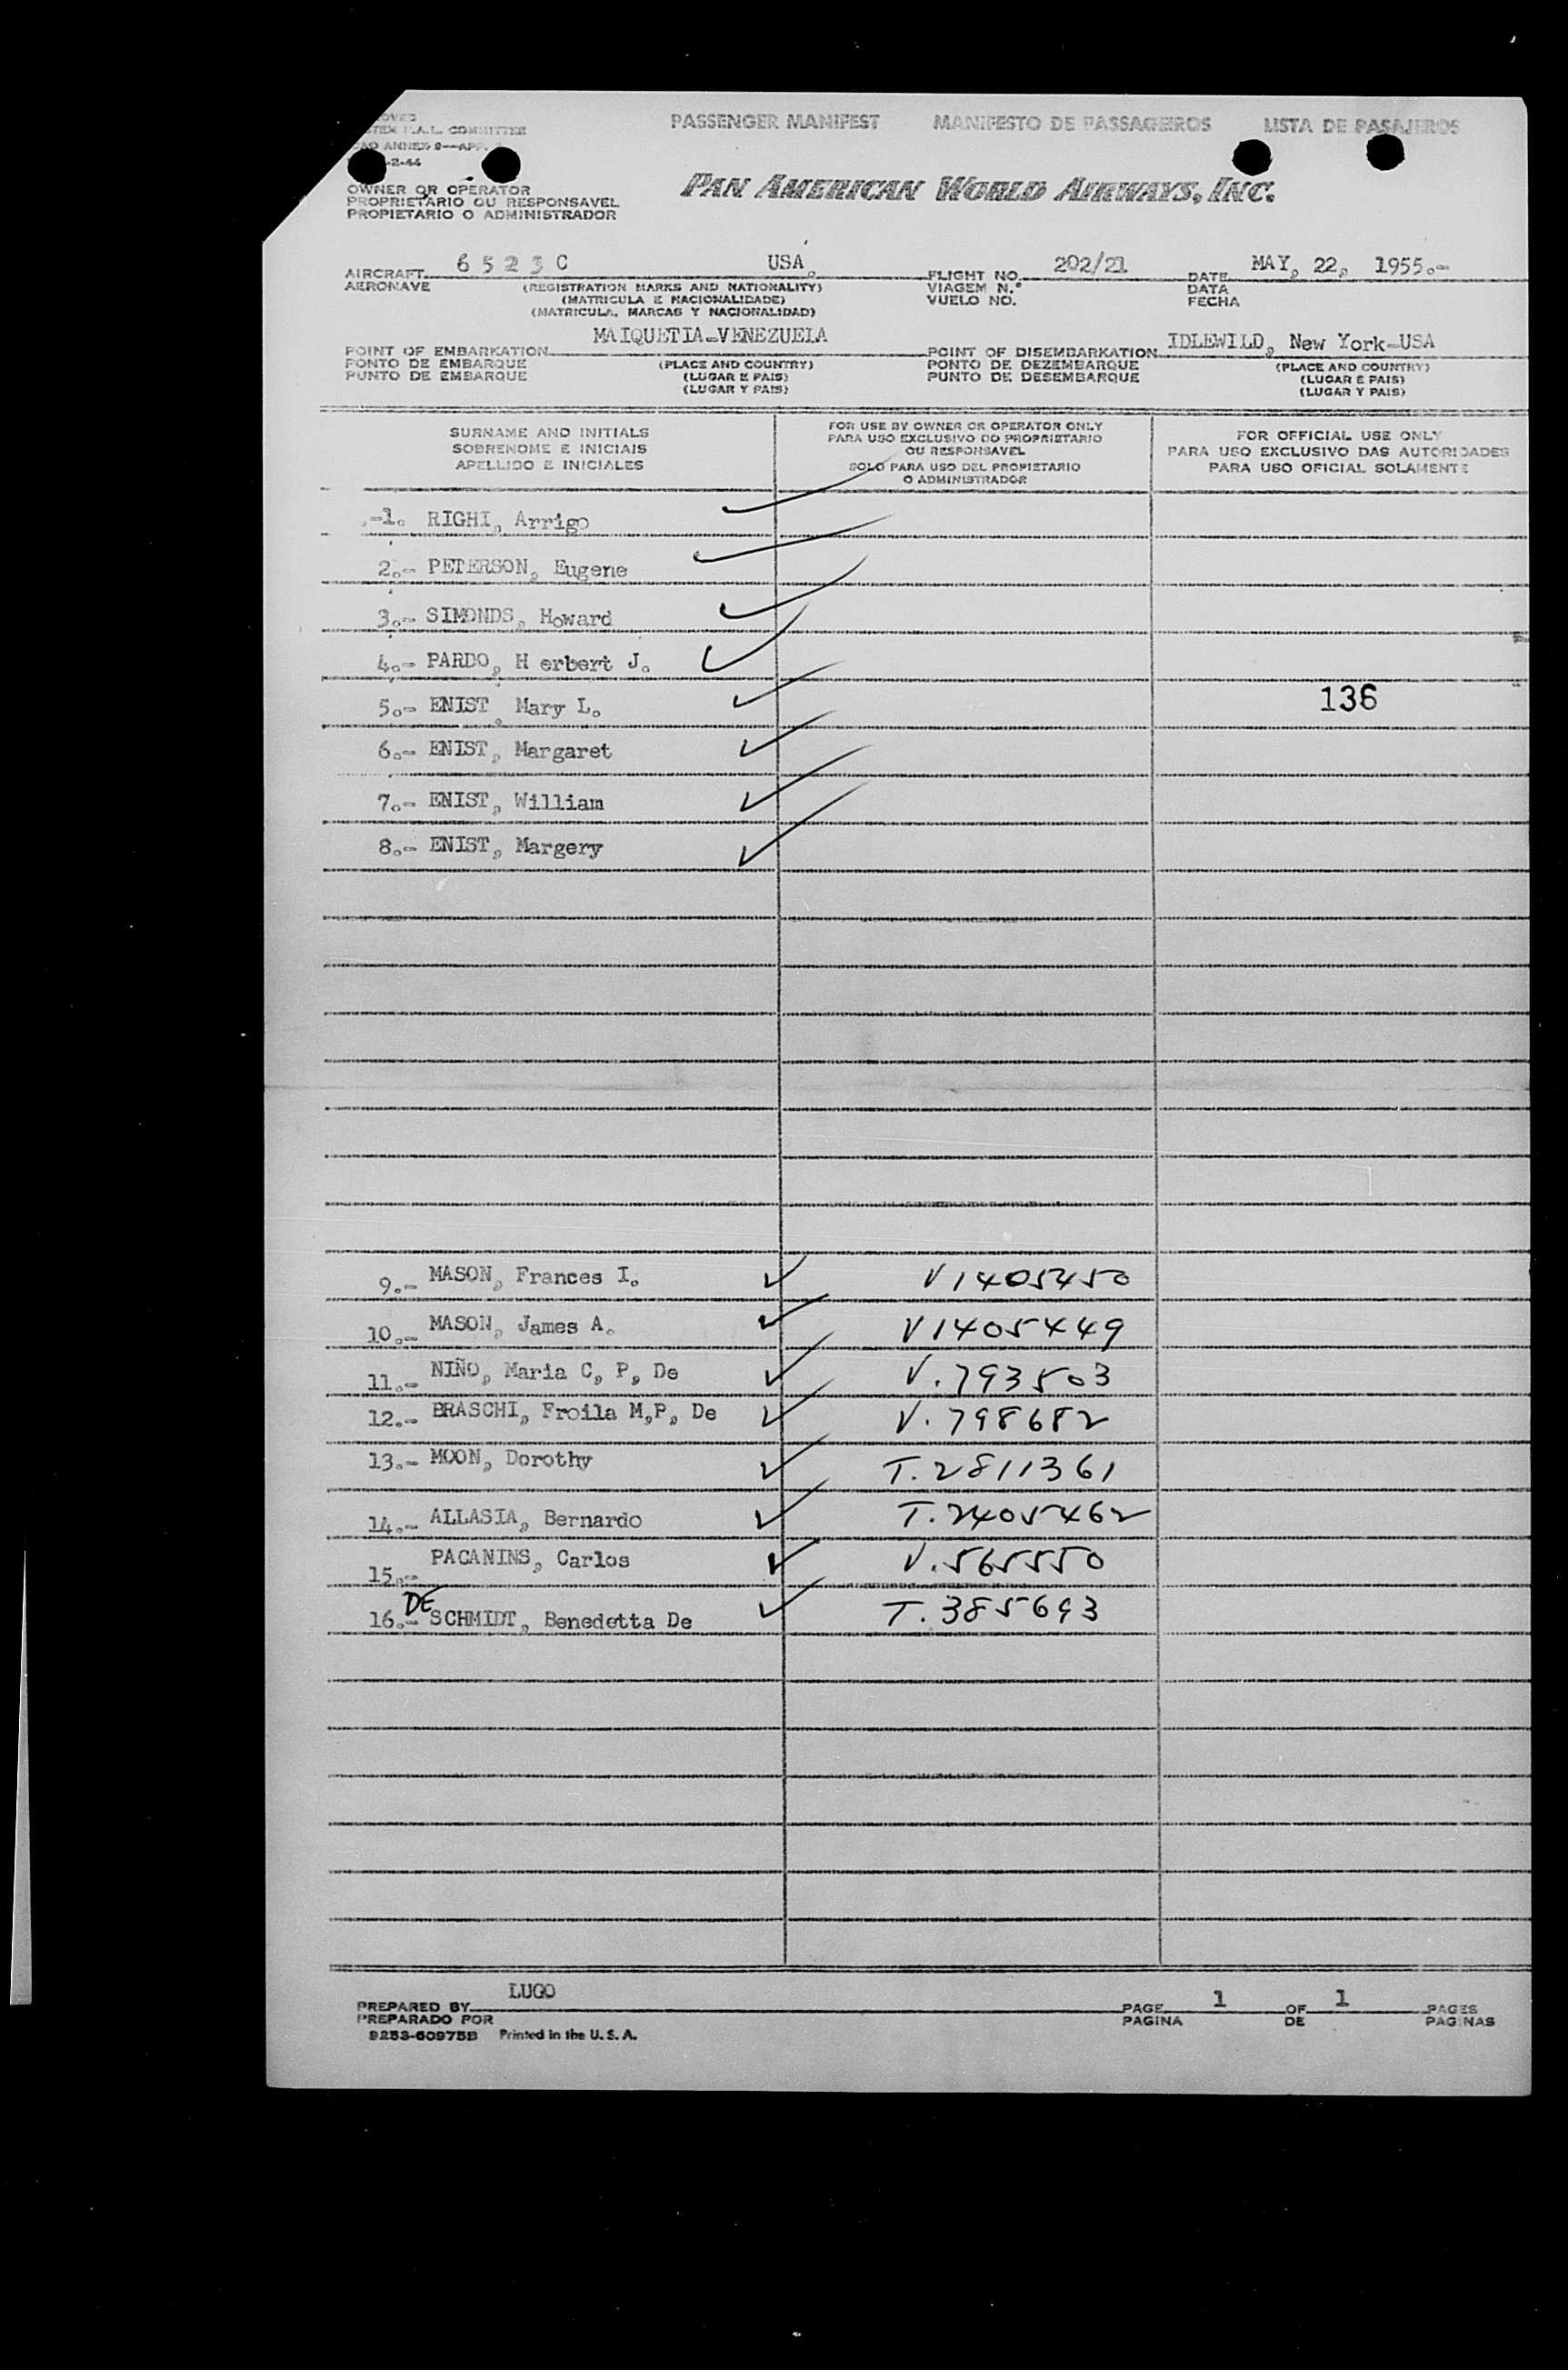 PASSENGER MANIFEST MANIFESTO DE PASSAGEIROS LISTA DE PASAJEROS
COMMITTEE
ANNEX 9—APP.
-2-44
OWNER OR OPERATOR
PROPRIETARIO OU RESPONSAVEL
PROPIETARIO O ADMINISTRADOR
PAN AMERICAN WORLD AIRWAYS, INC.
AIRCRAFT 6523C USA. FLIGHT NO. 202/21 DATE MAY, 22, 1955.-
AERONAVE (REGISTRATION MARKS AND NATIONALITY) VIAGEM N.° DATA
(MATRICULA E NACIONALIDADE) VUELO NO. FECHA
(MATRICULA, MARCAS Y NACIONALIDAD)
POINT OF EMBARKATION MAIQUETIA-VENEZUELA POINT OF DISEMBARKATION IDLEWILD, New York-USA
PONTO DE EMBARQUE (PLACE AND COUNTRY) PONTO DE DEZEMBARQUE (PLACE AND COUNTRY)
PUNTO DE EMBARQUE (LUGAR E PAIS) PUNTO DE DESEMBARQUE (LUGAR E PAIS)
(LUGAR Y PAIS) (LUGAR Y PAIS)
SURNAME AND INITIALS
SOBRENOME E INICIAIS
APELLIDO E INICIALES
FOR USE BY OWNER OR OPERATOR ONLY
PARA USO EXCLUSIVO DO PROPRIETARIO
OU RESPONSAVEL
SOLO PARA USO DEL PROPIETARIO
O ADMINISTRADOR
FOR OFFICIAL USE ONLY
PARA USO EXCLUSIVO DAS AUTORIDADES
PARA USO OFICIAL SOLAMENTE
.-1. RIGHI, Arrigo
2.- PETERSON, Eugene
3.- SIMONDS, Howard
4.- PARDO, H erbert J.
5.- ENIST, Mary L. 136
6.- ENIST, Margaret
7.- ENIST, William
8.- ENIST, Margery
9.- MASON, Frances I. V1405450
10.- MASON, James A. V1405449
11.- NIÑO, Maria C, P, De V.793503
12.- BRASCHI, Froila M,P, De V.798682
13.- MOON, Dorothy T.2811361
14.- ALLASIA, Bernardo T.2405462
15.- PACANINS, Carlos V.565550
16.- DE SCHMIDT, Benedetta De T.385693
PREPARED BY LUGO PAGE 1 OF 1 PAGES
PREPARADO POR PAGINA DE PAGINAS
9253-60975B Printed in the U. S. A.